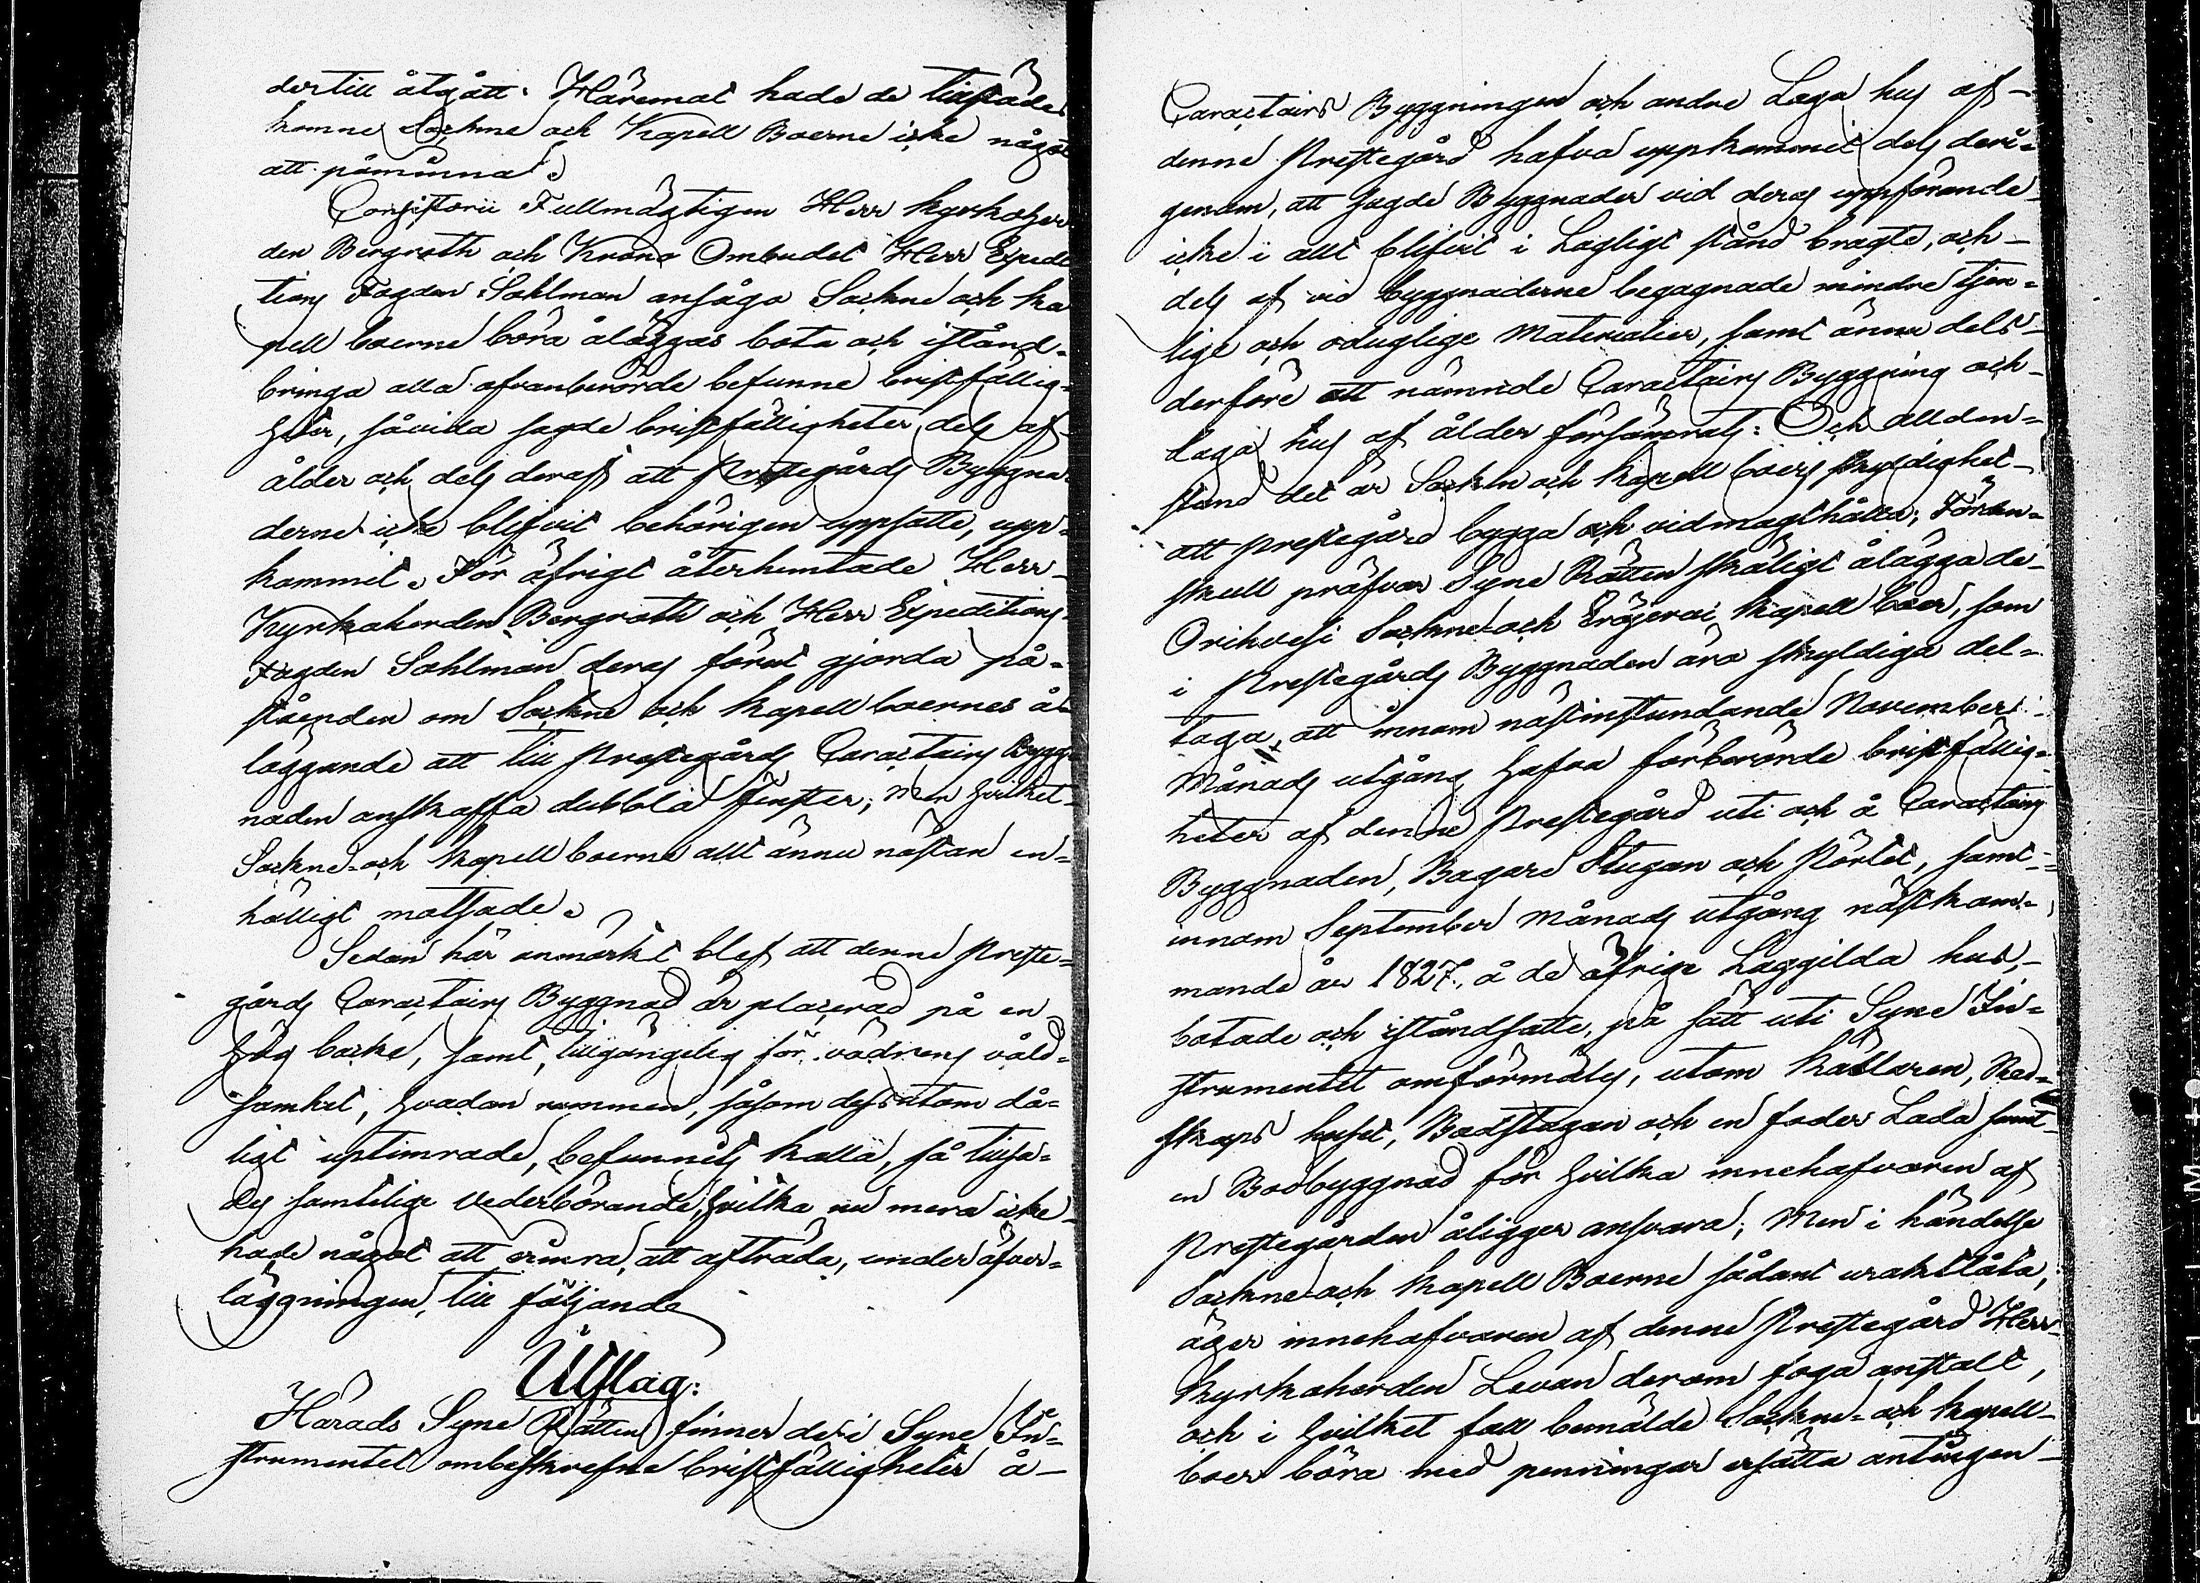 dertill åtgått. Häremot hade de tillstädes
komne Sockne och Kapell Boerne icke något
att påminna.
Consistorii Fullmägtigen Herr Kyrkoher-
den Bergroth och Krono Ombudet Herr Expedi
tions Fogden Sahlman ansågo Sockne och Ka
pell boerne böra åläggas bota och istånd-
bringa alla ofvanberörde befunne bristfällig-
heter, såvida sagde bristfälligheter dels af
ålder och dels deraf att Prestegårds Byggna-
derne icke blifvit behörigen uppsatte, upp-
kommit. För öfrigt återhemtade Herr
Kyrkoherden Bergroth och Herr Expeditions
Fogden Sahlman deras förut gjorda på-
ståenden om Sockne och Kapell boernes å-
läggande att till Prestegårds Caractairs Bygg-
naden anskaffa dubbla fenster; men hvilket
Sockne- och Kapell boerne allt ännu nästan en-
hälligt motsade.
Sedan här anmärkt blef att denne Preste-
gårds Caractairs Byggnad är placerad på en
hög backe, samt tillgängelig för vädrens våld-
samhet, hvadan rummen, såsom dessutom då-
ligt uptimrade, befunnits kalla, så tillsa-
des samtelige Vederbörande, hvilka nu mera icke
hade något att erinra, att afträda, under öfver-
läggningen, till följande
Utslag:
Härads Syne Rätten finner de i Syne In-
strumentet ombeskrefne bristfälligheter å
Caractairs Byggningen och andre Laga hus af
denne Prestegård hafva uppkommit dels deri-
genom, att sagde Byggnader vid deras uppförande
icke i allt blifvit i Lagligt stånd bragte, och
dels af vid byggnaderne begagnade mindre tjen-
lige och oduglige Materialier, samt ännu dels
derföre att nämnde Caractairs Byggning och
Laga hus af ålder försämrats: Och alldden-
stund det är Sockne och Kapell boers skyldighet
att prestegård bygga och vidmagthålla; Föran-
skull pröfvar Syne Rätten skäligt ålägga de
Orihvesi Sockne- och Eräjervi Kapell boer, som
i Prestegårds Byggnaden äro skyldiga del-
taga, att innom nästinstundande November
Månads utgång hafva förberörde bristfällig-
heter af denne Prestegård uti och å Caractairs
Byggnaden, Bagare Stugan och Pörtet, samt
innom September Månads utgång nästkom-
mande år 1827, å de öfrige Laggilda hus,
botade och iståndsatte, på sätt uti Syne In-
strumentet omförmäles, utom Källaren, Red-
skaps huset, Badstugan och en foder Lada samt
en Bodbyggnad för hvilka innehafvaren af
Prestegården åligger ansvara; Men i händelse
Sockne- och Kapell Boerne sådant uraktlåta,
äger innehafvaren af denne Prestegård Herr
Kyrkoherden Levan derom foga anstalt,
och i hvilket fall bemälde Sockne- och Kapell
boer böra med penningar ersätta antingen